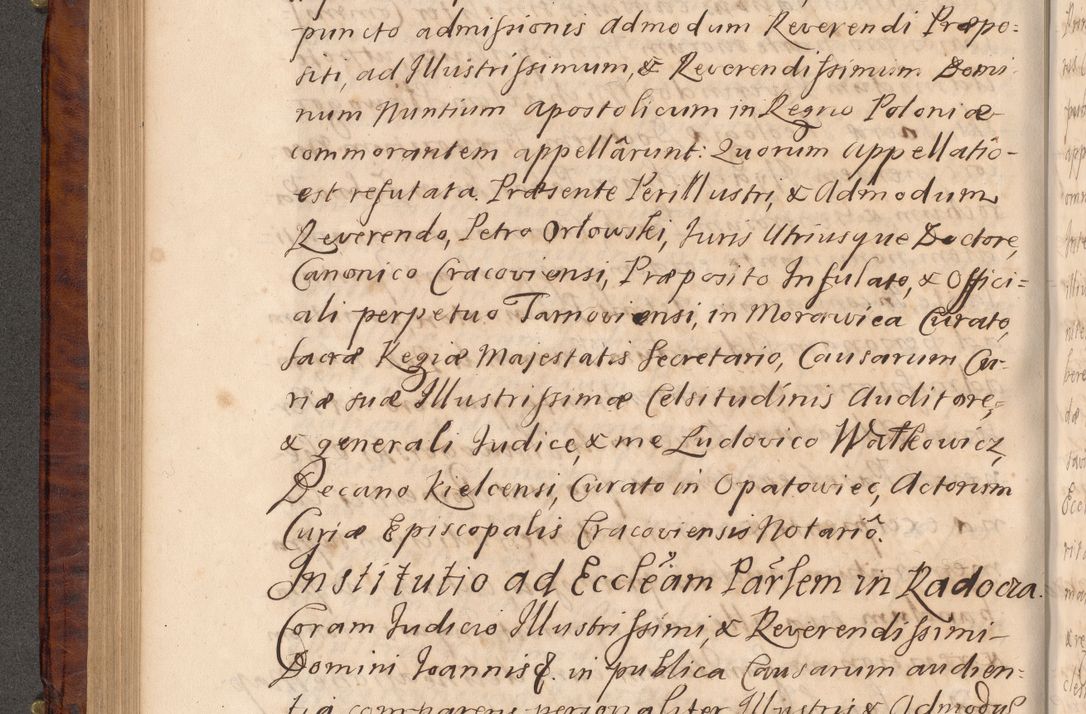 puncto admissionis Admodum Reverendi Præpo:
siti, ad Illustrissimum, & Reverendissimum Domi
num Nuntium Apostolicum in Regno Poloniæ
commorantem appellârunt: Quorum appellatiô
est refutata. Præsente Perillustri, & Admodum
Reverendo, Petro Orłowski, Juris Utriusque Doctore,
Canonico Cracoviensi, Præposito Infulato, & Offici=
ali perpetuo Tarnoviensi, in Morawica Curato,
Sacræ Regiæ Majestatis Secretario, Causarum Cu-
riæ suæ Illustrissimæ Celsitudinis Auditore,
& generali Judice, & me Ludovico Watkowicz,
Decano Kielcensi, Curato in Opatowiec, Actorum
Curiæ Episcopalis Cracoviensis Notariô.
Institutio ad Ecclêam Pârlem in Radocza.
Coram Judicio Illustrissimi, & Reverendissimi
Domini Joannis &. in publica Causarum audien:
tia comparens personaliter Illustris & Admodum